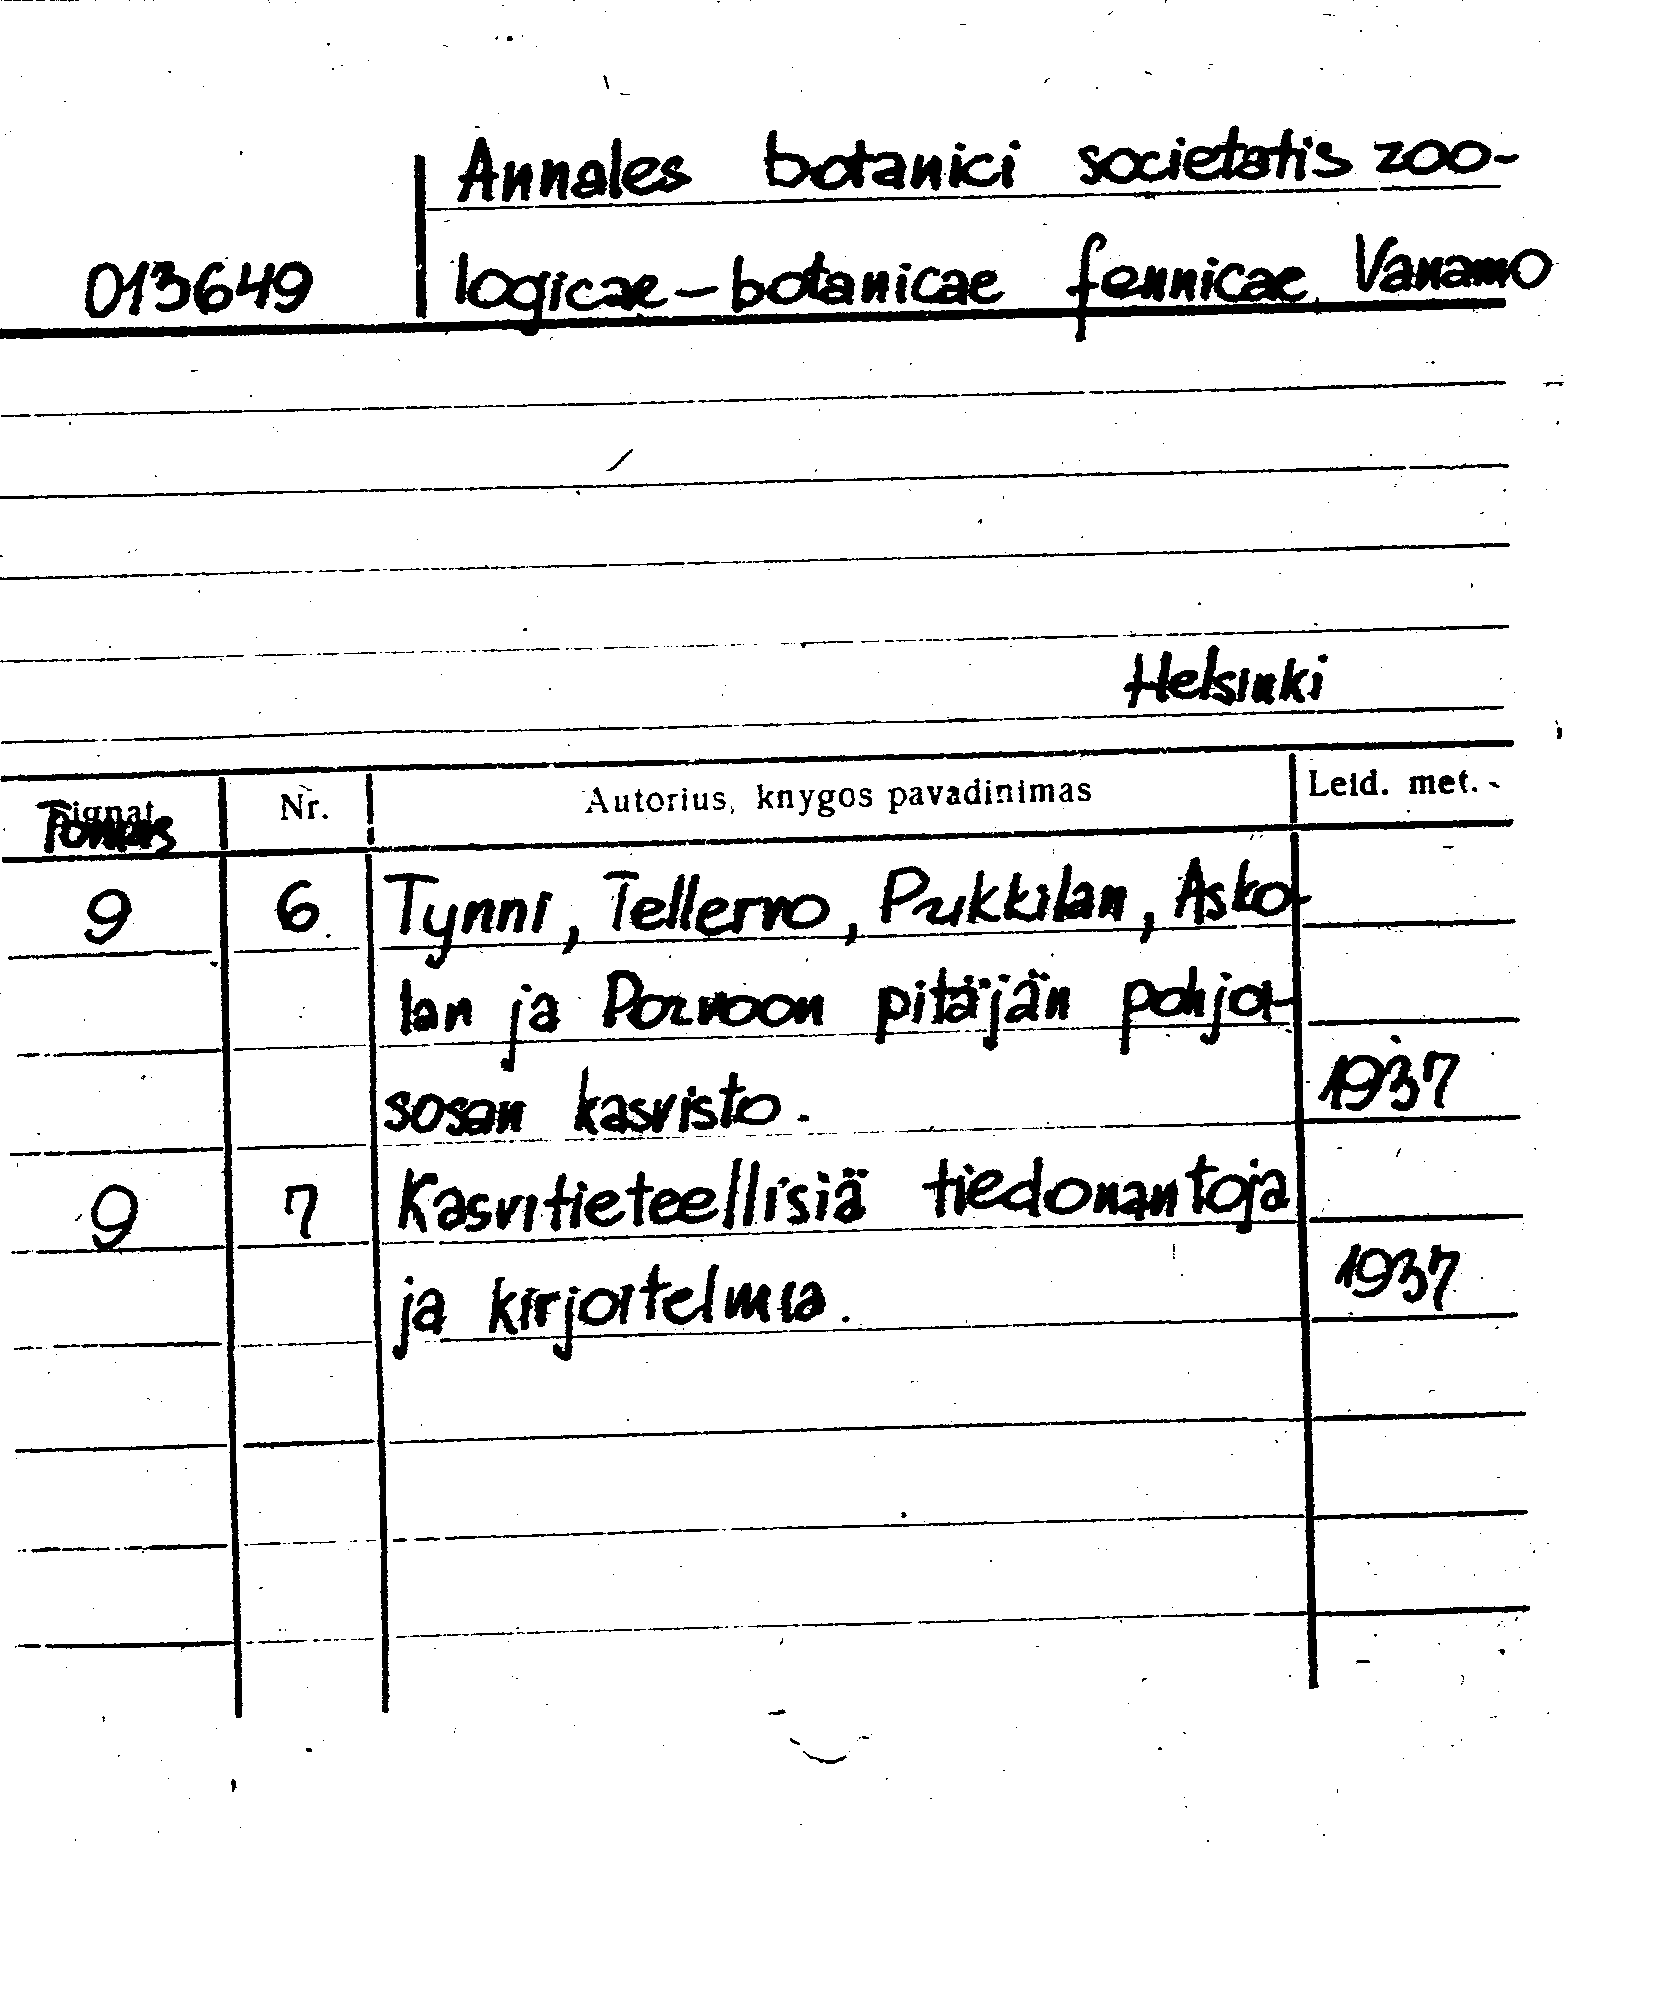 Annales botanici societatis zoo-
013649 logicae-botanicae fennicae Vanamo
Helsinki
Signat. Tomas Nr. Autorius, knygos pavadinimas Leid. met.
9 6 Tynni, Tellervo, Pukkilan, Asko-
lan ja Porvoon pitäjän pohjo-
sosan kasvisto. 1937
9 7 Kasvitieteellisiä tiedonantoja
ja kirjoitelmia. 1937